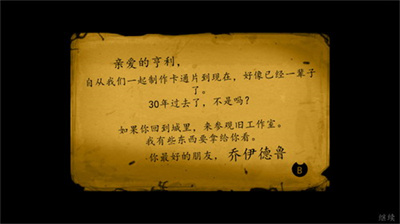 亲爱的亨利，
自从我们一起制作卡通片到现在，好像已经一辈子
了。
30年过去了，不是吗？
如果你回到城里，来参观旧工作室。
我有些东西要拿给你看。
你最好的朋友， 乔伊德鲁
B
继续